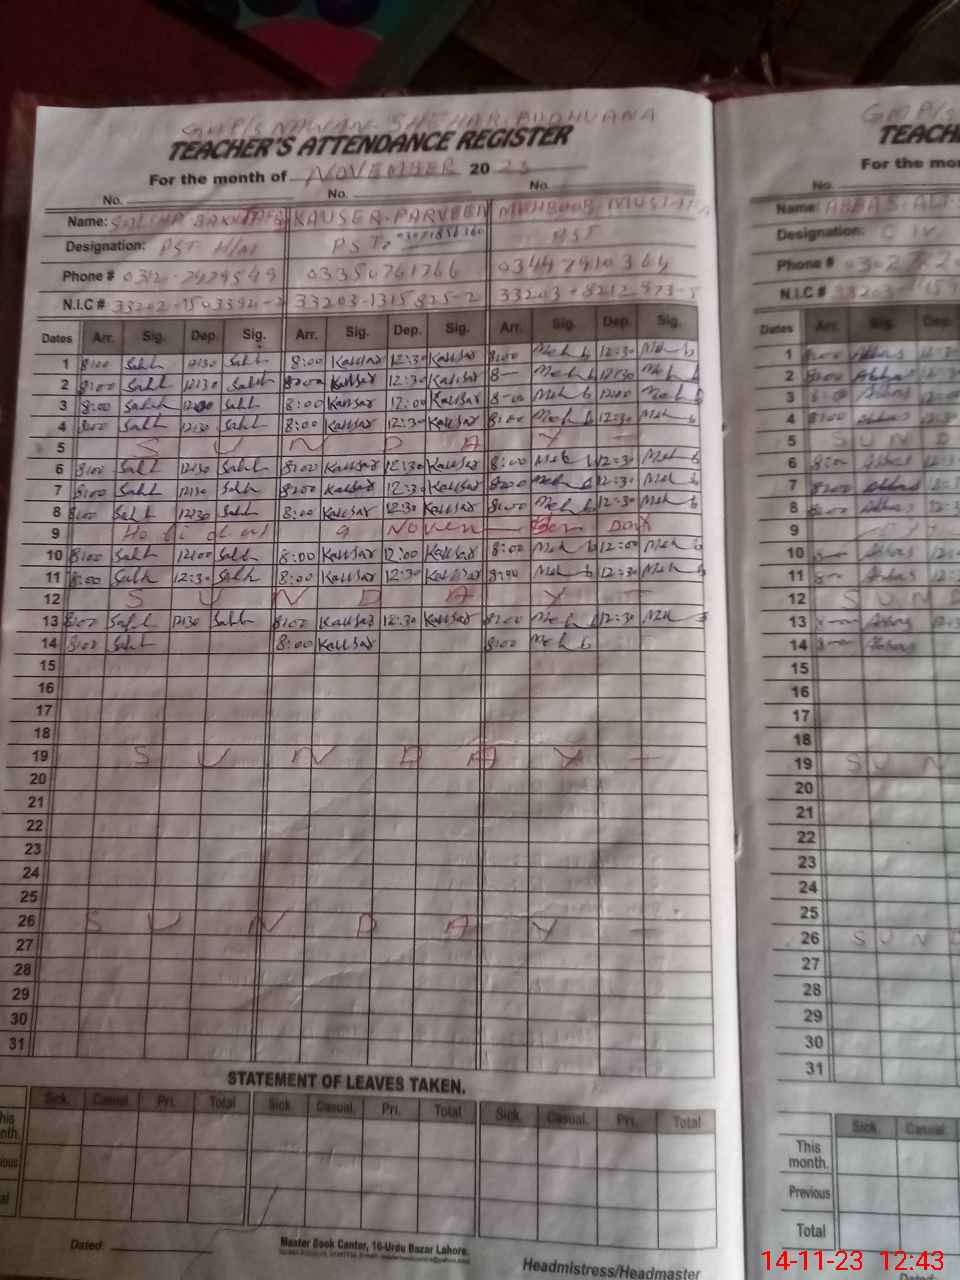 GMP/S NHWAN SHEHAR BUDHUANA
TEACHER'S ATTENDANCE REGISTER
For the month of NOVEMBER 2023
No. No. No.
Name: KAUSER PARVEEN MEHBOOB MUSTAFA
Designation: PST H/ PST PST
Phone # 03350761766
N.I.C # 33203-1315825-2
Dates Arr. Sig. Dep. Sig. Arr. Sig. Dep. Sig. Arr. Sig. Dep. Sig.
1 8:00 Salh 12:30 Salh 8:00 Kausar 12:30 Kausar 8:00 Meh b 12:30 Meh b
2 8:00 Salh 12:30 Salh 8:00 Kausar 12:30 Kausar 8— Meh b 12:30 Meh b
3 8:00 Salh 12:00 Salh 8:00 Kausar 12:00 Kausar 8— Meh b 12:00 Meh b
4 8:00 Salh 12:30 Salh 8:00 Kausar 12:30 Kausar 8:00 Meh b 12:30 Meh b
5 S U N D A Y —
6 8:00 Salh 12:30 Salh 8:00 Kausar 12:30 Kausar 8:00 Meh b 12:30 Meh b
7 8:00 Salh 12:30 Salh 8:00 Kausar 12:30 Kausar 8:00 Meh b 12:30 Meh b
8 8:00 Salh 12:30 Salh 8:00 Kausar 12:30 Kausar 8:00 Meh b 12:30 Meh b
9 Holiday 9 Noven— Ber Day
10 8:00 Salh 12:00 Salh 8:00 Kausar 12:00 Kausar 8:00 Meh b 12:00 Meh b
11 8:00 Salh 12:30 Salh 8:00 Kausar 12:30 Kausar 8:00 Meh b 12:30 Meh b
12 S U N D A Y —
13 8:00 Salh 12:30 Salh 8:00 Kausar 12:30 Kausar 8:00 Meh b 12:30 Meh b
14 8:00 Salh 8:00 Kausar 8:00 Meh b
15
16
17
18
19 S U N D A Y —
20
21
22
23
24
25
26 S U N D A Y —
27
28
29
30
31
STATEMENT OF LEAVES TAKEN.
Sick. Casual. Pri. Total Sick. Casual. Pri. Total Sick. Casual. Pri. Total
Dated:
Master Book Center, 16-Urdu Bazar Lahore.
Headmistress/Headmaster
GMP/S
TEACHE
For the mo
No.
Name: ABBAS ALI
Designation:
Phone #
N.I.C #
Dates Arr. Sig. Dep
1 8:00 Abbas
2 8:00 Abbas
3 8:00 Abbas
4 8:00 Abbas
5 S U N D
6 8:— Abbas
7 8:00 Abbas
8 8:00 Abbas
9
10 8— Abbas
11 8— Abbas
12 S U N D
13 8— Abbas
14 8— Abbas
15
16
17
18
19 S U N
20
21
22
23
24
25
26 S U N D
27
28
29
30
31
Sick. Casual.
This month.
Previous
Total
14-11-23 12:43